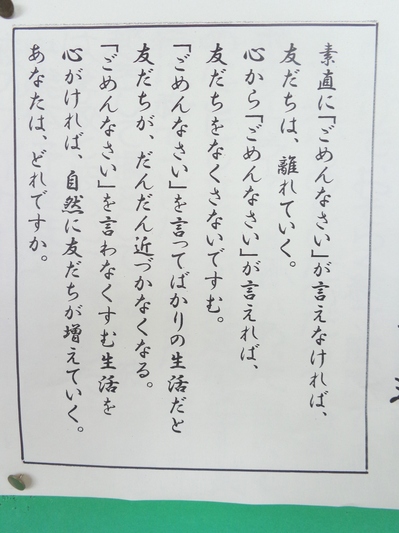 素直に「ごめんなさい」が言えなければ、
友だちは、離れていく。
心から「ごめんなさい」が言えれば、
友だちをなくさないですむ。
「ごめんなさい」を言ってばかりの生活だと
友だちが、だんだん近づかなくなる。
「ごめんなさい」を言わなくすむ生活を
心がければ、自然に友だちが増えていく。
あなたは、どれですか。